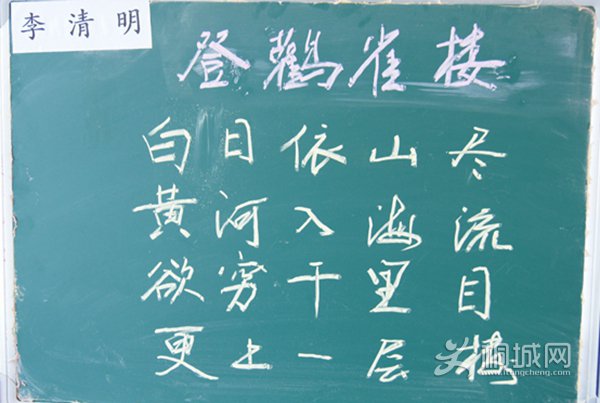 李清明
登鸛雀楼
白日依山尽
黄河入海流
欲穷千里目
更上一层楼
桐城网
itongcheng.com